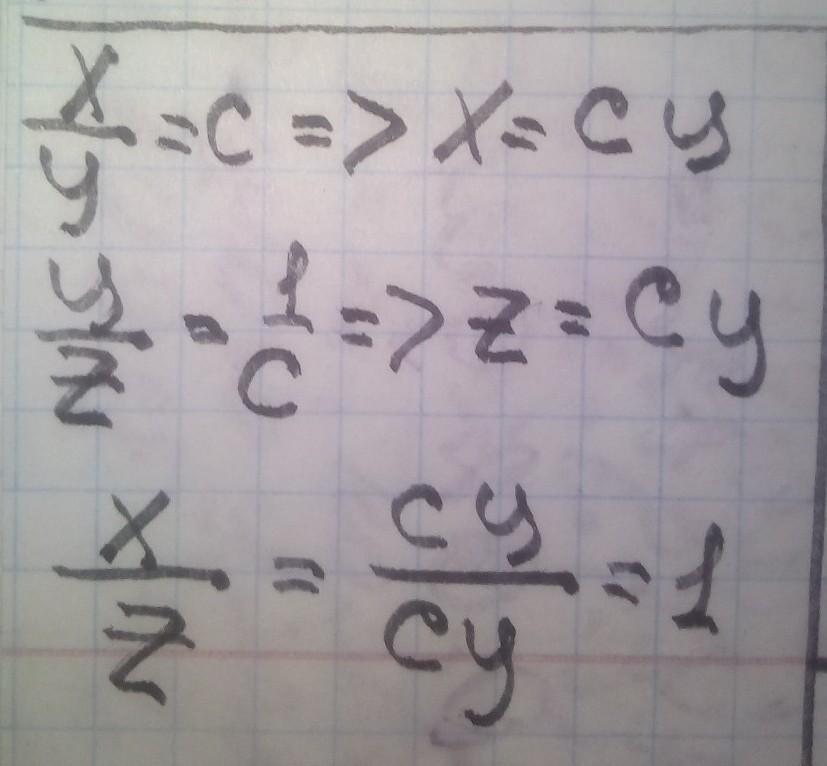 x/y = c => x = cy
y/z = 1/c => z = cy
x/z = cy/cy = 1